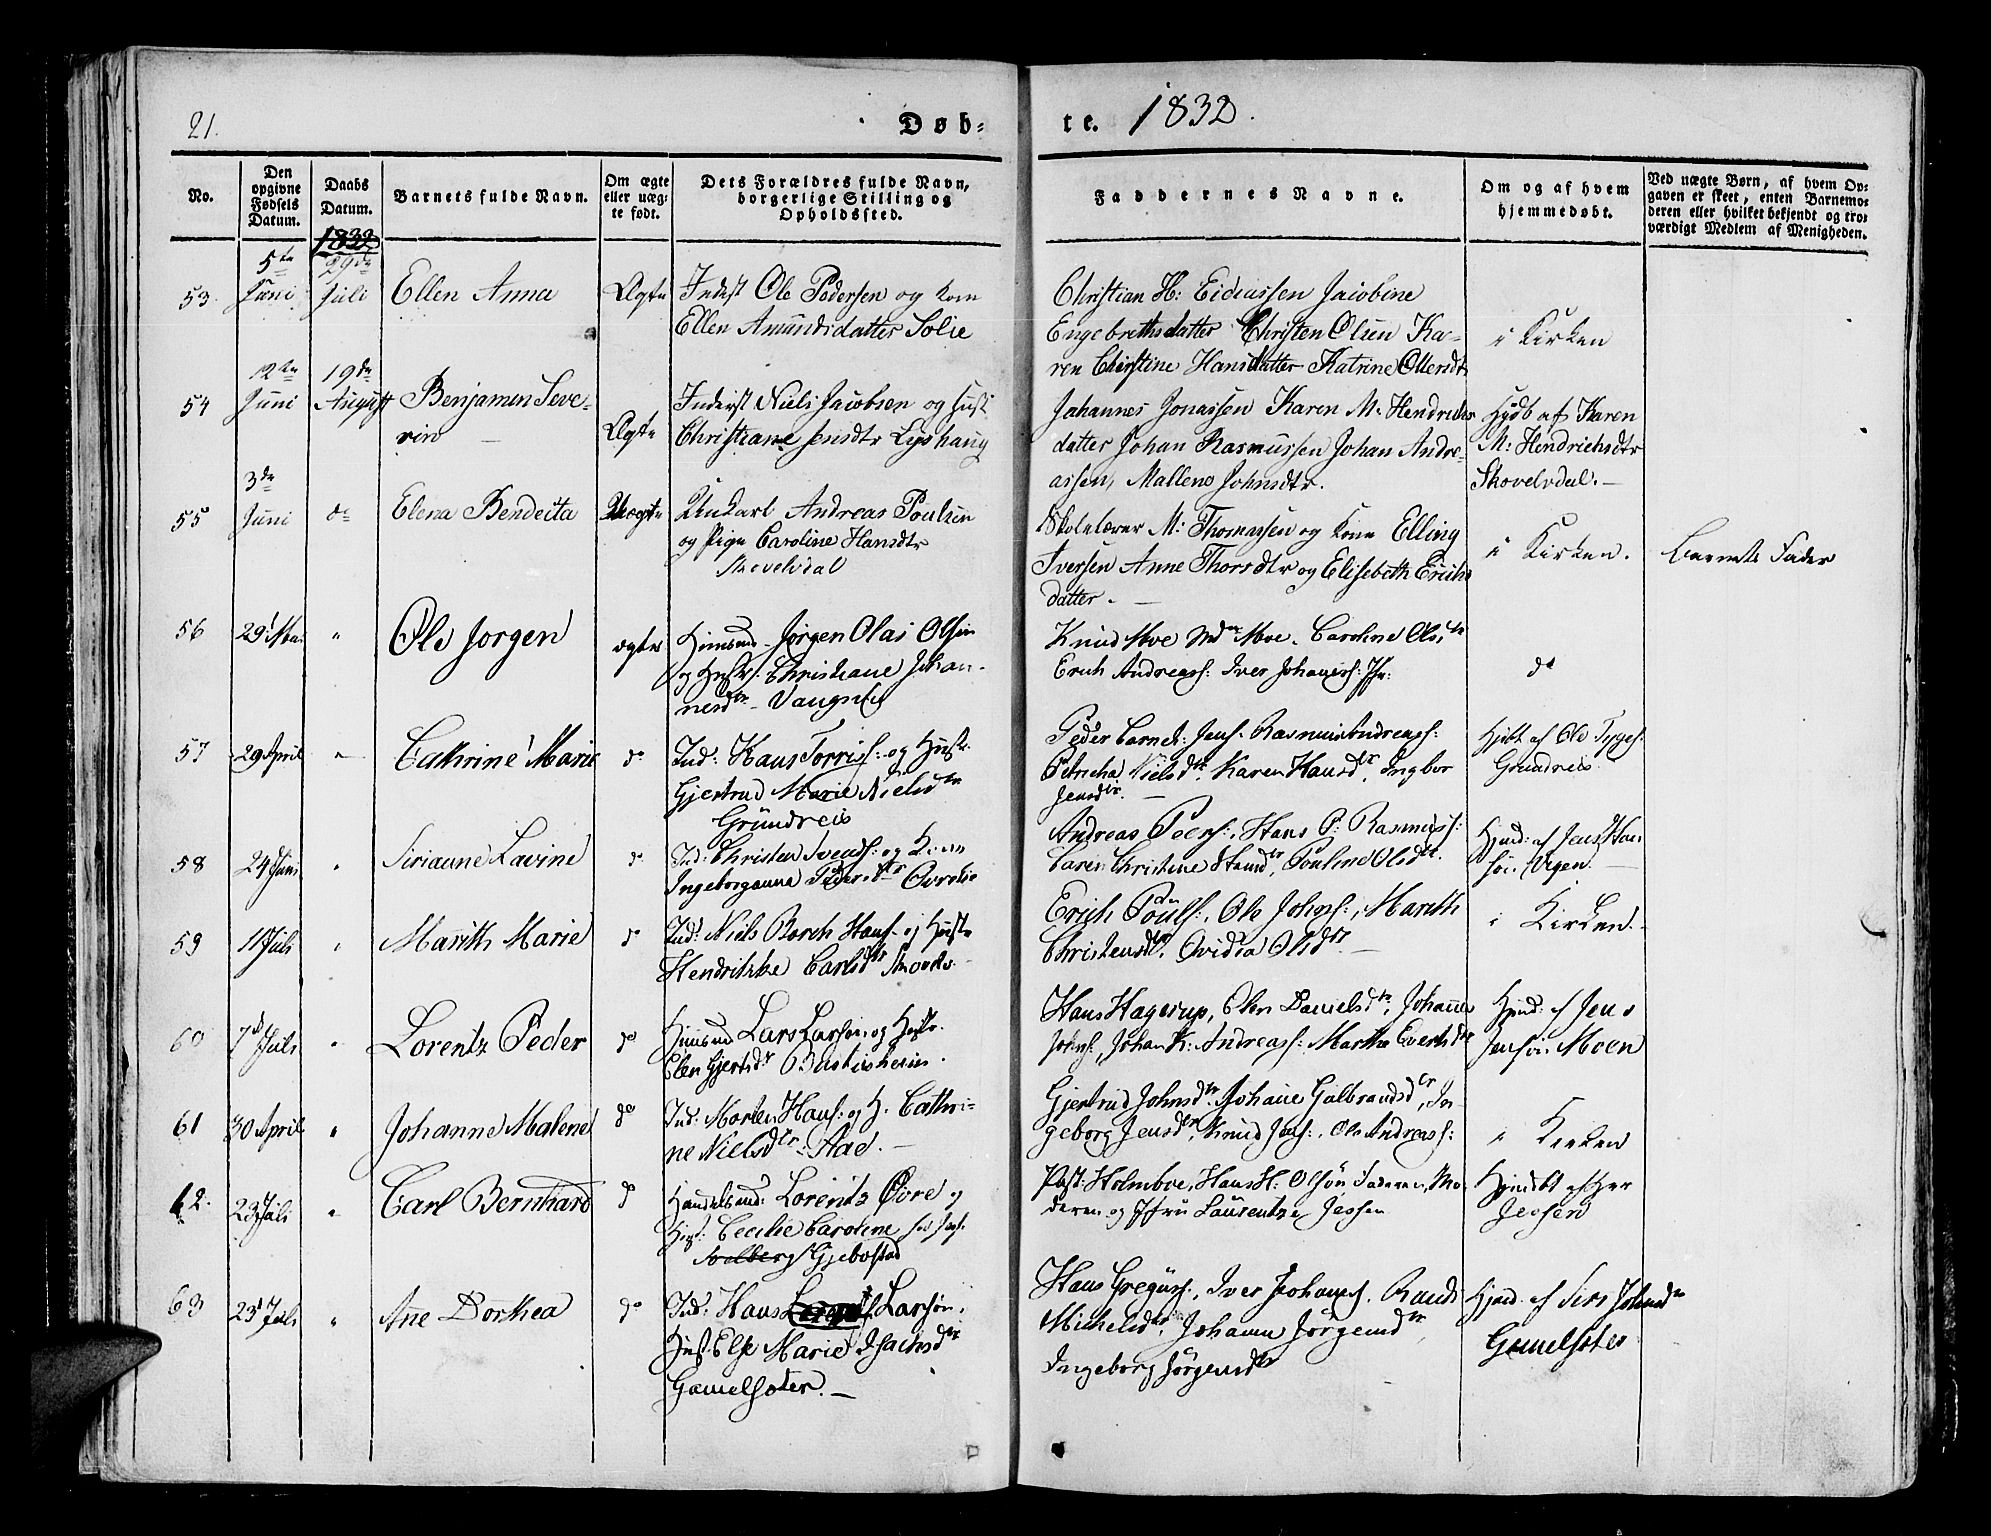 21.
Døb-
te. 1832.
No.
Den opgivne Fødsels Datum.
Daabs Datum.
Barnets fulde Navn.
Om ægte eller uæg- te født.
Dets Forældres fulde Navn, borgerlige Stilling og Opholdssted.
Faddernes Navne.
Om og af hvem hjemmedøbt.
Ved uægte Børn, af hvem Op- gaven er skeet, enten Barnemo- deren eller hvilket bekjendt og tro- værdigt Medlem af Menigheden.
1832
53. 5te Juni 29de Juli Ellen Anna Ægte Inderst Ole Pedersen og Kone
Ellen Amundsdatter Solie
Christian H: Eideissen Jacobine
Engebrethsdatter Christen Olsen Ka-
ren Christine Hansdatter Katrine Ottersdtr
i Kirken
54 12te Juni 19de August Benjamen Seve-
rin Ægte Inderst Niels Jacobsen og Hust
Christiane Jensdtr Lyshaug
Johannes Jonassen Karen M: Hendrichs
datter Johan Rasmussen Johan Andre-
assen, Mallene Johnsdtr.
Hjdb af Karen
M: Hendrichsdtr
Skovelvdal.
55 3de Juni do Elena Bendecta Uægte Unkarl Andreas Poulsen
og Pige Caroline Hansdtr
Skovelvdal
Skolelærer M: Thomassen og Kone Elling
Iversen Anne Thorsdtr og Elisebeth Erichs
datter.
i Kirken.
Barnets Fader
56 29 Mai " Ole Jorgen ægte Huusmd Jørgen Olai Olsen
og Hustr. Christiane Johan-
nesdtr Vangsvig
Knud Moe Md Moe. Caroline Olsdtr
Erich Andreass: Iver Johaness:
do
57 29 April " Cathrine Marie do Ind: Hans Torriss: og Hustr.
Gjertrud Marie Nielsdtr
Grundreis
Peder Jens: Rasmus Andreass:
Petricha Nielsdtr, Karen Hansdtr, Ingbor
Jensdtr.
Hjbt af Ole Tyges:
Grundreis.
58 24 Juni " Siriaune Lavine do Ind: Christen Svends: og Kone
Ingeborganna Pedersdtr
Andreas Peers:, Hans P: Rasmuss:
Caren Christine Hansdtr, Pouline Olsdtr.
Hjmd: af Jens Han
sen Vegen.
59 11 Juli " Marith Marie do Ind: Niels Borch Hans: og Hustr
Hendrikke Carlsdtr
Erich Pouls:, Ole Johns:, Marith
Christensdtr, Ovidia Olsdtr
i Kirken.
60 7de Juli " Lorentz Peder do Huusmd Lars Larsen og Hustr.
Elen Gjertsdtr
Hans Hagerup, Elen Danielsdtr, Johanne
Johns:, Johan K: Andreass: Marthe Evertsdtr
Hjmd: af Jens
Jensen Moen
61 30 April " Johanne Malene do Ind: Morten Hans: og H. Cathri-
ne Nielsdtr
Gjertrud Johnsdtr, Johane Gulbrandsdtr, In-
geborg Jensdtr, Knud Jens:, Ole Andreass:
i Kirken
62. 23 Juli " Carl Bernhard do Handelsmd: Lorentz Øvre og
Hust: Cecilie Caroline
Gjebostad
Past: Holmboe, Hans H: Olsøn, Faderen, Mo-
deren og Jfru Laurentze Jessen
Hjemdbt af Her
Jessen
63 23 Juli " Ane Dorthea do Ind: Hans Larsøn,
Hust. Else Marie Isachsdtr
Gamelsæter.
Hans Greguss:, Iver Johanes, Randi
Michelsdtr, Johanne Jørgensdtr
Ingeborg Jørgensdtr
Hjmd. af Siri Johnsdtr
Gamelsæter